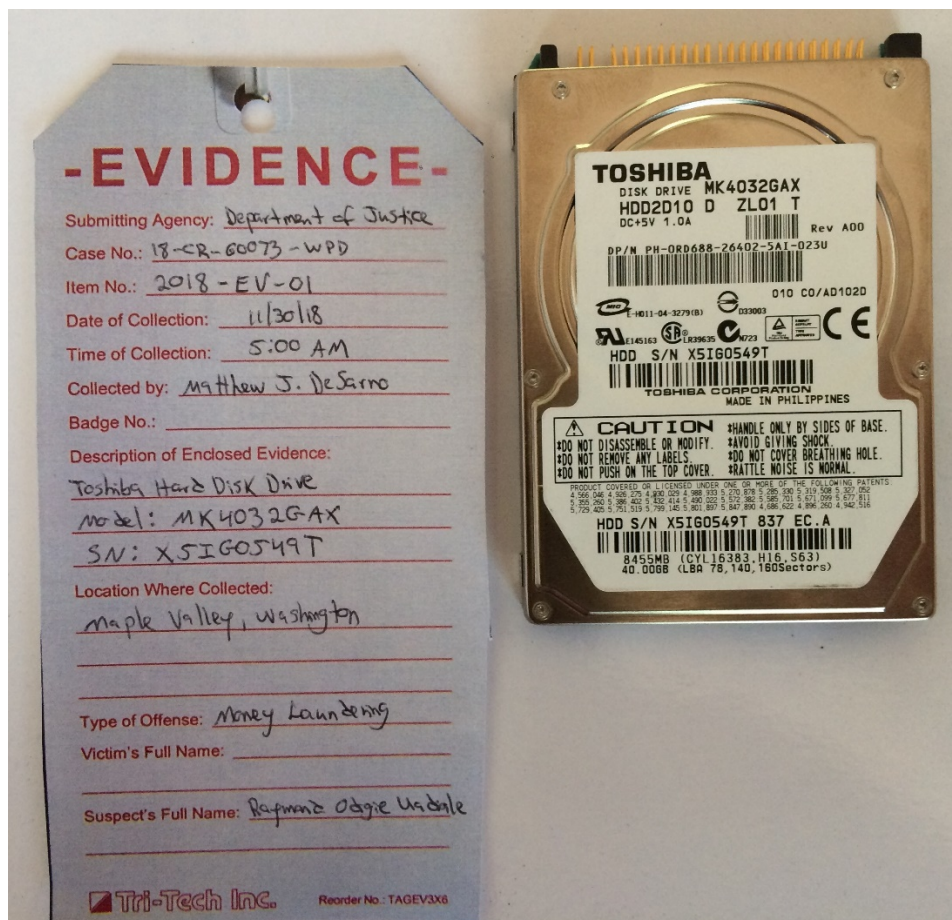 -EVIDENCE-
Submitting Agency: Department of Justice
Case No.: 18-CR-60073-WPD
Item No.: 2018-EV-01
Date of Collection: 11/30/18
Time of Collection: 5:00 AM
Collected by: Matthew J. DeSarno
Badge No.:
Description of Enclosed Evidence:
Toshiba Hard Disk Drive
Model: MK4032GAX
SN: X5IG0549T
Location Where Collected:
Maple Valley, Washington
Type of Offense: Money Laundering
Victim's Full Name:
Suspect's Full Name: Raymond Odigie Uadiale
Tri-Tech Inc.
Reorder No.: TAGEV3X6
TOSHIBA
DISK DRIVE MK4032GAX
HDD2D10 D ZL01 T
DC+5V 1.0A
Rev A00
DP/N PH-0RD688-26402-5AI-023U
010 C0/AD102D
E-H011-04-3279(B) D33003
E145163 LR39635 N723
HDD S/N X5IG0549T
TOSHIBA CORPORATION
MADE IN PHILIPPINES
CAUTION
*DO NOT DISASSEMBLE OR MODIFY.
*DO NOT REMOVE ANY LABELS.
*DO NOT PUSH ON THE TOP COVER.
*HANDLE ONLY BY SIDES OF BASE.
*AVOID GIVING SHOCK.
*DO NOT COVER BREATHING HOLE.
*RATTLE NOISE IS NORMAL.
PRODUCT COVERED OR LICENSED UNDER ONE OR MORE OF THE FOLLOWING PATENTS:
HDD S/N X5IG0549T 837 EC.A
8455MB (CYL16383,H16,S63)
40.00GB (LBA 78,140,160Sectors)